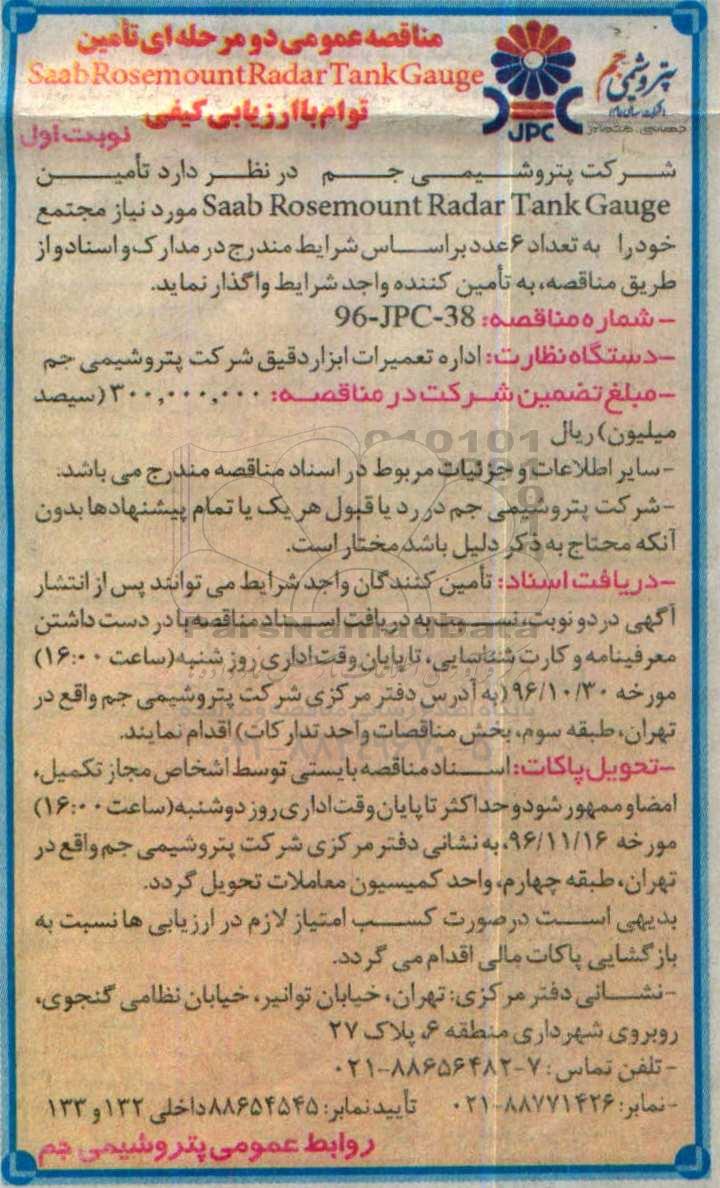 مناقصه عمومی دو مرحله ای تأمین
Saab Rosemount Radar Tank Gauge
توام با ارزیابی کیفی
نوبت اول
پتروشیمی جم
JPC
شرکت پتروشیمی جم در نظر دارد تأمین
Saab Rosemount Radar Tank Gauge مورد نیاز مجتمع
خود را به تعداد ۶ عدد بر اساس شرایط مندرج در مدارک و اسناد و از
طریق مناقصه، به تأمین کننده واجد شرایط واگذار نماید.
- شماره مناقصه: 96-JPC-38
-دستگاه نظارت: اداره تعمیرات ابزار دقیق شرکت پتروشیمی جم
-مبلغ تضمین شرکت در مناقصه: ۳۰۰,۰۰۰,۰۰۰ (سیصد
میلیون) ریال
-سایر اطلاعات و جزئیات مربوط در اسناد مناقصه مندرج می باشد.
-شرکت پتروشیمی جم در رد یا قبول هر یک یا تمام پیشنهادها بدون
آنکه محتاج به ذکر دلیل باشد مختار است.
-دریافت اسناد: تأمین کنندگان واجد شرایط می توانند پس از انتشار
آگهی در دو نوبت، نسبت به دریافت اسناد مناقصه با در دست داشتن
معرفینامه و کارت شناسایی، تا پایان وقت اداری روز شنبه (ساعت ۱۶:۰۰)
مورخه ۹۶/۱۰/۳۰ (به آدرس دفتر مرکزی شرکت پتروشیمی جم واقع در
تهران، طبقه سوم، بخش مناقصات واحد تدارکات) اقدام نمایند.
-تحویل پاکات: اسناد مناقصه بایستی توسط اشخاص مجاز تکمیل،
امضا و ممهور شود و حداکثر تا پایان وقت اداری روز دوشنبه (ساعت ۱۶:۰۰)
مورخه ۹۶/۱۱/۱۶، به نشانی دفتر مرکزی شرکت پتروشیمی جم واقع در
تهران، طبقه چهارم، واحد کمیسیون معاملات تحویل گردد.
بدیهی است درصورت کسب امتیاز لازم در ارزیابی ها نسبت به
بازگشایی پاکات مالی اقدام می گردد.
-نشانی دفتر مرکزی: تهران، خیابان توانیر، خیابان نظامی گنجوی،
روبروی شهرداری منطقه ۶، پلاک ۲۷
- تلفن تماس: ۷-۸۸۶۵۶۴۸۲-۰۲۱
-نمابر: ۸۸۷۷۱۴۲۶-۰۲۱ تأیید نمابر: ۸۸۶۵۴۵۴۵ داخلی ۱۳۲ و ۱۳۳
روابط عمومی پتروشیمی جم
ParsNamadData